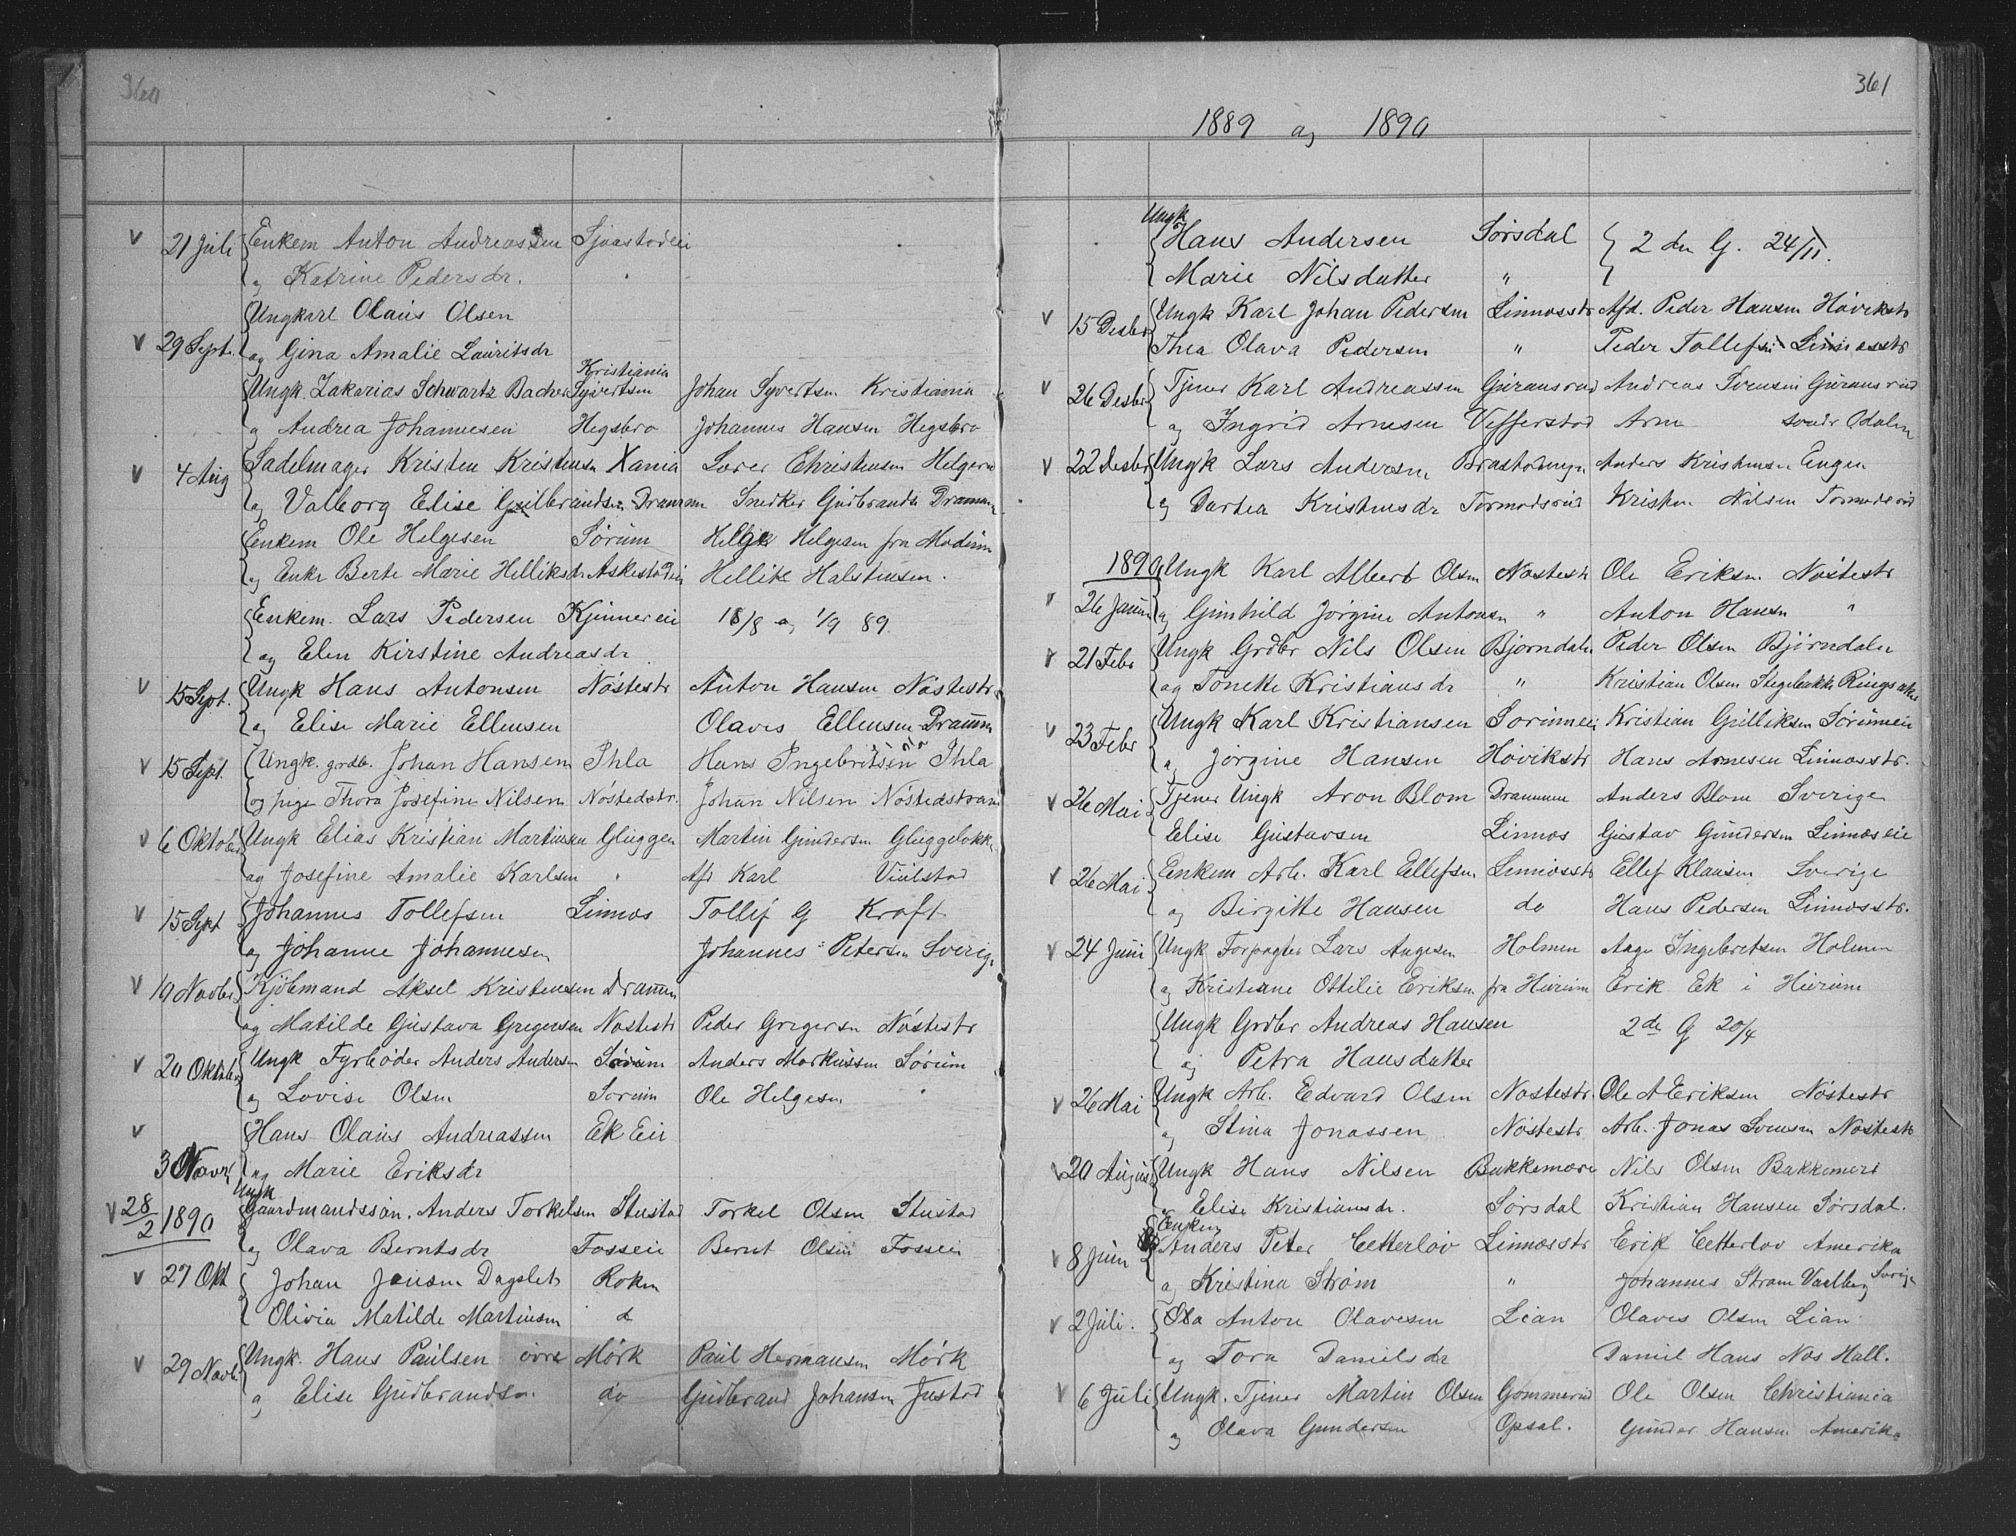 360
21 Juli Enkem Anton Andreassen Sjaastadeie
og Katrine Pedersdr. "
Ungkarl Olaus Olsen
29 Sept. og Gina Amalie Lauritsdr
Kristiania
Ungk. Zakarias Schwartz Bacher Syvertsen Johan Syvertsen Kristiania
og Andrea Johannesen Hegsbro Johannes Hansen Hegsbro
4 Aug Sadelmager Kristen Kristensen Xania Sører Christensen
og Valborg Elise Gulbrandsen Drammen Snedker Gudbrandsen Drammen
Enkem Ole Helgesen Sørum Helge Helgesen fra Modum
og Enke Berte Marie Helliksdr Askestadeie Hellik Halstensen.
Enkem. Lars Pedersen Kjinnereie 18/8 og 1/9 89.
og Elen Kirstine Andreasdr
15 Sept. Ungk Hans Antonsen Nøstestr Anton Hansen Nøstestr.
og Elise Marie Ellensen Olaves Ellensen Drammen
15 Sept. Ungk. grdb. Johan Hansen Ihla Hans Ingebritsen Ihla
og pige Thora Josefine Nilsen Nøstedstr. Johan Nilsen Nøstedstrand
6 Oktober Ungk Elias Kristian Martinsen Gluggen Martin Gundersen Gluggeløkk
og Josefine Amalie Karlsen " Afd Karl Viulstad
15 Sept Johannes Tollefsen Linnes Tollef G Kraft
og Johanne Johannesen Johannes Petersen Sverige
10 Novbr. Kjøbmand Aksel Kristensen Drammen
og Matilde Gustava Gregersen Nøstestr Peder Gregersen Nøstestr
20 Oktober Ungk Fyrbøder Anders Andersen Sørum Anders Markussen Sørum
og Lovise Olsen Sørum Ole Helgesen "
Hans Olaus Andreassen Ek Eie
3 Novr og Marie Eriksdr
Ungk
28/2 1890 Gaardmandssøn. Anders Torkelsen Stustad Torkel Olsen Stustad
og Olava Berntsdr Fosseie Bernt Olsen Fosseie
27 Okt Johan Jensen Dagslet Røken
Olivia Matilde Martinsen d
29 Novbr Ungk. Hans Paulsen øvre Mørk Paul Hermansen Mørk
og Elise Gudbrandsen. do Gudbrand Johansen Justad
361
1889 og 1890
Ungk
Hans Andersen Sørsdal 2 den G. 24/11.
Marie Nilsdatter "
15 Desbr Ungk Karl Johan Pedersen Linnesstr Afd. Peder Hansen Høvikstr
Thea Olava Pedersen " Peder Tollefsen Linnesstr
26 Desbr Tjener Karl Andreassen Guransrud Andreas Svensen Guransrud
og Ingrid Arnesen Vefferstad Arne søndr Odalen
22 Desbr Ungk Lars Andersen Anders Kristensen Engen
og Dortea Kristensdr Tormodsrud Kristen Nilsen Tormodsrud
1890 Ungk Karl Albert Olsen Nøstestr Ole Eriksen Nøstestr
26 Januar og Gunhild Jørgine Antonsen " Anton Hansen "
21 Febr Ungk Grdbr Nils Olsen Bjørndalen Peder Olsen Bjørndalen
og Tonette Kristiansdr " Kristian Olsen Stegebakke Ringsaker
23 Febr Ungk Karl Kristiansen Sørumeie Kristian Gulliksen Sørumeie
og Jørgine Hansen Høvikstr Hans Arnesen Linnesstr.
26 Mai Tjener Ungk Aron Blom Drammen Anders Blom Sverige
Elise Gustavsen Linnes Gustav Gundersen Linneseie
26 Mai Enkem Arb. Karl Ellefsen Linnesstr Ellef Klausen Sverige
og Birgitte Hansen do Hans Pedersen Linnesstr.
24 Juni Ungk Forpagter Lars Aagesen Holmen Aage Ingebretsen Holmen
og Kristiane Ottilie Eriksen fra Hurum Erik Ek i Hurum
Ungk Grdbr Andreas Hansen 2de G 20/4
og Petra Hansdatter
26 Mai Ungk Arb. Edvard Olsen Nøstestr. Ole A Eriksen Nøstestr
og Stina Jonassen Nøstestr Arb. Jonas Svensen Nøstestr
20 August Ungk Hans Nilsen Bakkemøre Nils Olsen Bakkemere
og Elise Kristiansdr. Sørsdal Kristian Hansen Sørsdal.
Enkem
8 Juni Anders Peter Cetterløv Linnesstr Erik Cetterløv Amerika
og Kristina Strøm " Johannes Strøm Sverige
2 Juli. Ola Anton Olavesen Lian Olaves Olsen Lian
og Tora Danielsdr Daniel Hans Nes Hall.
6 Juli Ungk. Tjener Martin Olsen Gommerud Ole Olsen Christiania
og Olava Gundersen Opsal. Gunder Hansen Amerika